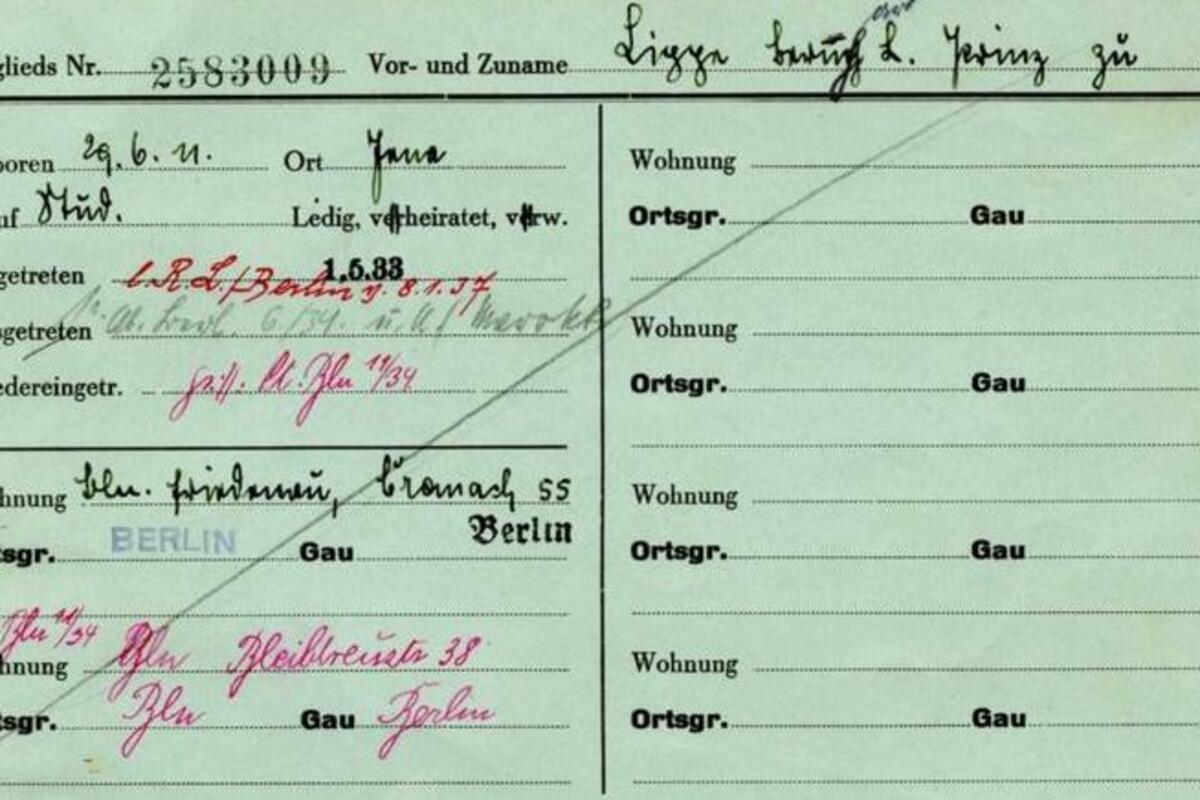 glieds Nr. 2583009 Vor- und Zuname Lippe Prinz zu
boren 29. 6. 11. Ort Jena
uf Stud. Ledig, verheiratet, verw.
getreten 1.5.33
Berlin v. 8.1.37
sgetreten 6/34. u.
edereingetr. Bln 11/34
hnung Bln. Friedenau, Cranach 55
tsgr. BERLIN Gau Berlin
Bln 11/34
hnung Bln Bleibtreustr 38
tsgr. Bln Gau Berlin
Wohnung
Ortsgr. Gau
Wohnung
Ortsgr. Gau
Wohnung
Ortsgr. Gau
Wohnung
Ortsgr. Gau